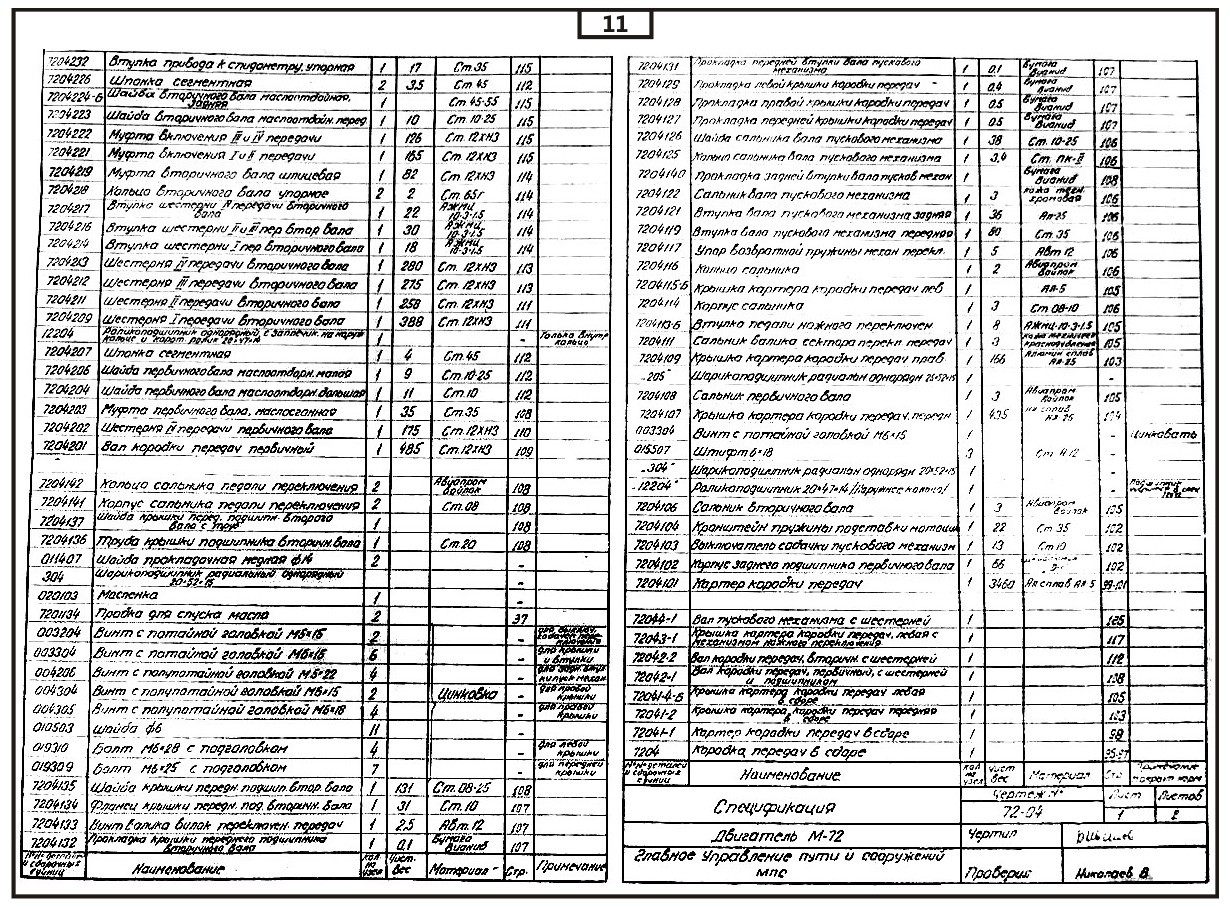 11
7204232 Втулка привода к спидометру, упорная 1 17 Ст.35 115
7204226 Шпонка сегментная 2 3,5 Ст 45 112
7204224-Б Шайба вторичного вала маслоотдойная, задняя 1 Ст 45-55 115
7204223 Шайба вторичного вала маслоотдойн. перед. 1 10 Ст 10-25 115
7204222 Муфта включения III и IV передачи 1 126 Ст 12ХН3 115
7204221 Муфта включения I и II передачи 1 165 Ст. 12ХН3 115
7204219 Муфта вторичного вала шлицевая 1 82 Ст 12ХН3 114
7204218 Кольцо вторичного вала упорное 2 2 Ст. 65г 114
7204217 Втулка шестерни IV передачи вторичного вала 1 22 АЖМц 10-3-1.5 114
7204216 Втулка шестерни II и III пер втор вала 1 30 АЖМц 10-3-1.5 114
7204214 Втулка шестерни I пер вторичного вала 1 18 АЖМц 10-3-1.5 114
7204213 Шестерня IV передачи вторичного вала 1 280 Ст. 12ХН3 113
7204212 Шестерня III передачи вторичного вала 1 275 Ст. 12ХН3 113
7204211 Шестерня II передачи вторичного вала 1 258 Ст. 12ХН3 111
7204209 Шестерня I передачи вторичного вала 1 388 Ст. 12ХН3 111
12204 Роликоподшипник однорядной, с заплечик. на наруж кольце и 20×47×14 1 Только внутр кольцо
7204207 Шпонка сегментная 1 4 Ст.45 112
7204206 Шайба первичного вала маслоотдорн. малая 1 9 Ст.10-25 112
7204204 Шайба первичного вала маслоотдорн. большая 1 11 Ст.10 112
7204203 Муфта первичного вала, маслосгонная 1 35 Ст.35 108
7204202 Шестерня IV передачи первичного вала 1 175 Ст.12ХН3 110
7204201 Вал коробки передач первичный 1 485 Ст.12ХН3 109
7204142 Кольцо сальника педали переключения 2 Авиапром войлок 108
7204141 Корпус сальника педали переключения 2 Ст.08 108
7204137 Шайба крышки перед. подшипн. второго вала с труб 1 108
7204136 Труба крышки подшипника вторичн. вала 1 Ст.20 108
011407 Шайба прокладочная медная ф14 2 -
304 Шарикоподшипник радиальный однорядный 20×52×15 -
020103 Масленка 1 -
7201134 Пробка для спуска масла 2 37
003204 Винт с потайной головкой М5×15 2 -
003304 Винт с потайной головкой М6×15 6 - для крышки и втулки
004206 Винт с полупотайной головкой М5×22 4 -
004304 Винт с полупотайной головкой М6×15 2 Цинковка - для правой крышки
004305 Винт с полупотайной головкой М6×18 4 - для правой крышки
010503 Шайба ф6 11 -
019310 Болт М6×28 с подголовком 4 - для левой крышки
019309 Болт М6×25 с подголовком 7 - для передней крышки
7204135 Шайба крышки передн. подшип втор. вала 1 131 Ст.08-25 108
7204134 Фланец крышки передн. под. вторичн. вала 1 31 Ст.10 107
7204133 Винт валика вилок переключен. передач 1 2,5 Авт.12 107
7204132 Прокладка крышки переднего подшипника вторичного вала 1 0,1 Бумага Вианид 107
№№ детал и сборочных единиц Наименование кол на узел Чист. вес Материал Стр. Примечание
7204131 Прокладка передней втулки вала пускового механизма 1 0,1 Бумага Вианид 107
7204129 Прокладка левой крышки коробки передач 1 0,4 Бумага Вианид 107
7204128 Прокладка правой крышки коробки передач 1 0,5 Бумага Вианид 107
7204127 Прокладка передней крышки коробки передач 1 0,5 Бумага Вианид 107
7204126 Шайба сальника вала пускового механизма 1 38 Ст. 10-25 106
7204125 Кольцо сальника вала пускового механизма 1 3,4 Ст. ПК-II 106
7204140 Прокладка задней втулки вала пусков механ 1 Бумага Вианид 108
7204122 Сальник вала пускового механизма 1 3 кожа техн. хромовая 106
7204121 Втулка вала пускового механизма задняя 1 36 Ал-25 106
7204119 Втулка вала пускового механизма передняя 1 80 Ст. 35 106
7204117 Упор возвратной пружины механ перекл. 1 5 Авт 12 106
7204116 Кольцо сальника 1 2 Авиапром войлок 106
7204115-Б Крышка картера коробки передач лев 1 АЛ-5 105
7204114 Корпус сальника 1 3 Ст 08-10 106
7204113-Б Втулка педали ножного переключен 1 8 АЖМц-10-3-1.5 105
7204111 Сальник валика сектора перекл передач 1 3 105
7204109 Крышка картера коробки передач прав 1 166 Алюмин сплав 103
„205" Шарикоподшипник радиальн однорядн 25×52×15 1 -
7204108 Сальник первичного вала 1 3 Авиапром войлок 105
7204107 Крышка картера коробки передач. передн 1 435 104
003304 Винт с потайной головкой М6×15 1 - Цинковать
015507 Штифт 6×18 3 Ст. А 12 -
„304" Шарикоподшипник радиальн однорядн 20×52×15 1 -
„12204" Роликоподшипник 20×47×14 /Наружнее кольцо/ 1 -
7204106 Сальник вторичного вала 1 3 Авиапром войлок 105
7204104 Кронштейн пружины подставки мотоцик 1 22 Ст 35 102
7204103 Выключатель собачки пускового механизм 1 13 Ст 10 102
7204102 Корпус заднего подшипника первичного вала 1 66 102
7204101 Картер коробки передач 1 3460 Ал сплав АЛ-5 99-101
72044-1 Вал пускового механизма с шестерней 1 125
72043-1 Крышка картера коробки передач, левая с механизмом ножного переключения 1 117
72042-2 Вал коробки передач, вторичн. с шестерней 1 112
72042-1 Вал коробки передач, первичный, с шестерней и подшипником 1 108
72041-4-Б Крышка картера коробки передач левая в сборе 1 105
72041-2 Крышка картера коробки передач передняя в сборе 1 103
72041-1 Картер коробки передач в сборе 1 98
7204 Коробка передач в сборе 1 95-97
№№ деталей и сборочных единиц Наименование кол на узел Чист вес Материал Стр Примечание
Спецификация Чертеж № 72-04 Лист 1 Листов 2
Двигатель М-72 Чертил
Главное Управление пути и сооружений МПС Проверил Николаев В.